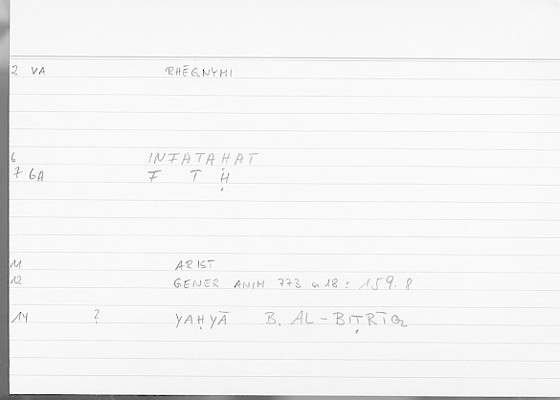 2 VA RHĒGNYMI
6 INFATAḤAT
7 6A F T Ḥ
11 ARIST
12 GENER ANIM 773 a 18 : 159.8
14 ? YAḤYĀ B. AL-BIṬRĪQ